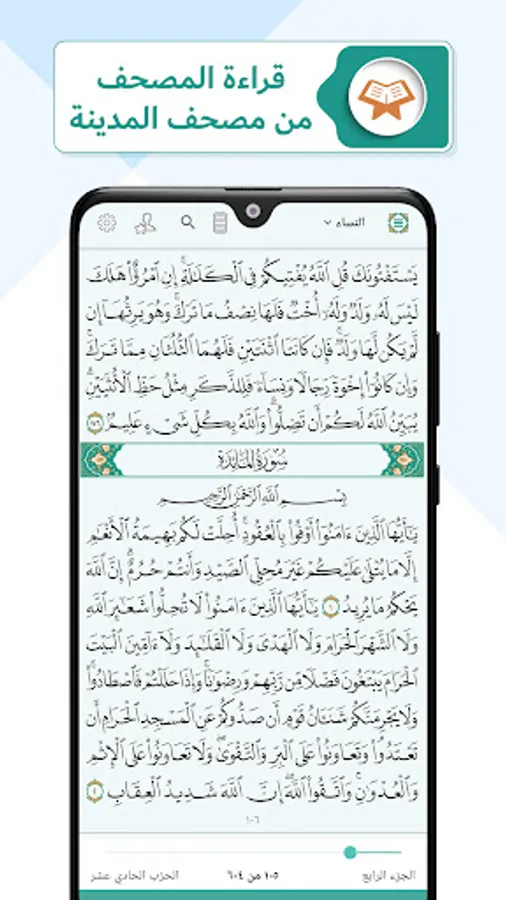 قراءة المصحف
من مصحف المدينة
النساء
يَسْتَفْتُونَكَ قُلِ ٱللَّهُ يُفْتِيكُمْ فِي ٱلْكَلَٰلَةِۚ إِنِ ٱمْرُؤٌا۟ هَلَكَ
لَيْسَ لَهُۥ وَلَدٌ وَلَهُۥٓ أُخْتٌ فَلَهَا نِصْفُ مَا تَرَكَۚ وَهُوَ يَرِثُهَآ إِن
لَّمْ يَكُن لَّهَا وَلَدٌۚ فَإِن كَانَتَا ٱثْنَتَيْنِ فَلَهُمَا ٱلثُّلُثَانِ مِمَّا تَرَكَۚ
وَإِن كَانُوٓا۟ إِخْوَةً رِّجَالًا وَنِسَآءً فَلِلذَّكَرِ مِثْلُ حَظِّ ٱلْأُنثَيَيْنِۗ
يُبَيِّنُ ٱللَّهُ لَكُمْ أَن تَضِلُّوا۟ۗ وَٱللَّهُ بِكُلِّ شَيْءٍ عَلِيمٌۢ ١٧٦
سُورَةُ المَائِدَةِ
بِسْمِ ٱللَّهِ ٱلرَّحْمَٰنِ ٱلرَّحِيمِ
يَٰٓأَيُّهَا ٱلَّذِينَ ءَامَنُوٓا۟ أَوْفُوا۟ بِٱلْعُقُودِۚ أُحِلَّتْ لَكُم بَهِيمَةُ ٱلْأَنْعَٰمِ
إِلَّا مَا يُتْلَىٰ عَلَيْكُمْ غَيْرَ مُحِلِّي ٱلصَّيْدِ وَأَنتُمْ حُرُمٌۗ إِنَّ ٱللَّهَ
يَحْكُمُ مَا يُرِيدُ ١ يَٰٓأَيُّهَا ٱلَّذِينَ ءَامَنُوا۟ لَا تُحِلُّوا۟ شَعَٰٓئِرَ ٱللَّهِ
وَلَا ٱلشَّهْرَ ٱلْحَرَامَ وَلَا ٱلْهَدْيَ وَلَا ٱلْقَلَٰٓئِدَ وَلَآ ءَآمِّينَ ٱلْبَيْتَ
ٱلْحَرَامَ يَبْتَغُونَ فَضْلًا مِّن رَّبِّهِمْ وَرِضْوَٰنًاۚ وَإِذَا حَلَلْتُمْ فَٱصْطَادُوا۟ۚ
وَلَا يَجْرِمَنَّكُمْ شَنَـَٔانُ قَوْمٍ أَن صَدُّوكُمْ عَنِ ٱلْمَسْجِدِ ٱلْحَرَامِ أَن
تَعْتَدُوا۟ۘ وَتَعَاوَنُوا۟ عَلَى ٱلْبِرِّ وَٱلتَّقْوَىٰۖ وَلَا تَعَاوَنُوا۟ عَلَى ٱلْإِثْمِ
وَٱلْعُدْوَٰنِۚ وَٱتَّقُوا۟ ٱللَّهَۖ إِنَّ ٱللَّهَ شَدِيدُ ٱلْعِقَابِ ٢
١٠٦
الجزء الرابع
١٠٥ من ٦٠٤
الحزب الحادي عشر